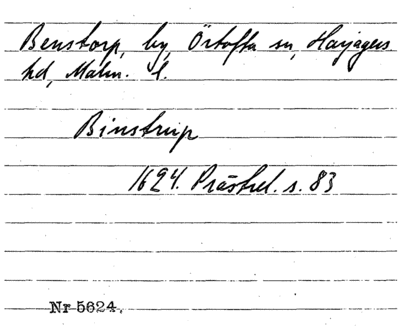 Benstorp, by, Örtofta sn, Harjagers
hd, Malm. l.
Binstrup
1624. Prästrel. s. 83
Nr 5624.